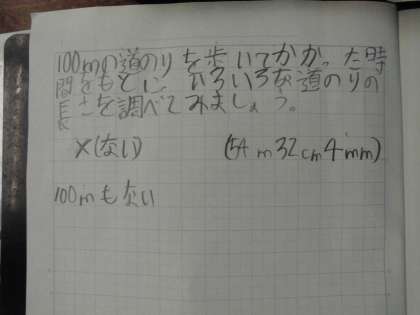 100mの道のりを歩いてかかった時
間をもとに、いろいろな道のりの
長さを調べてみましょう。
×(ない) (54m32cm4mm)
100mもない